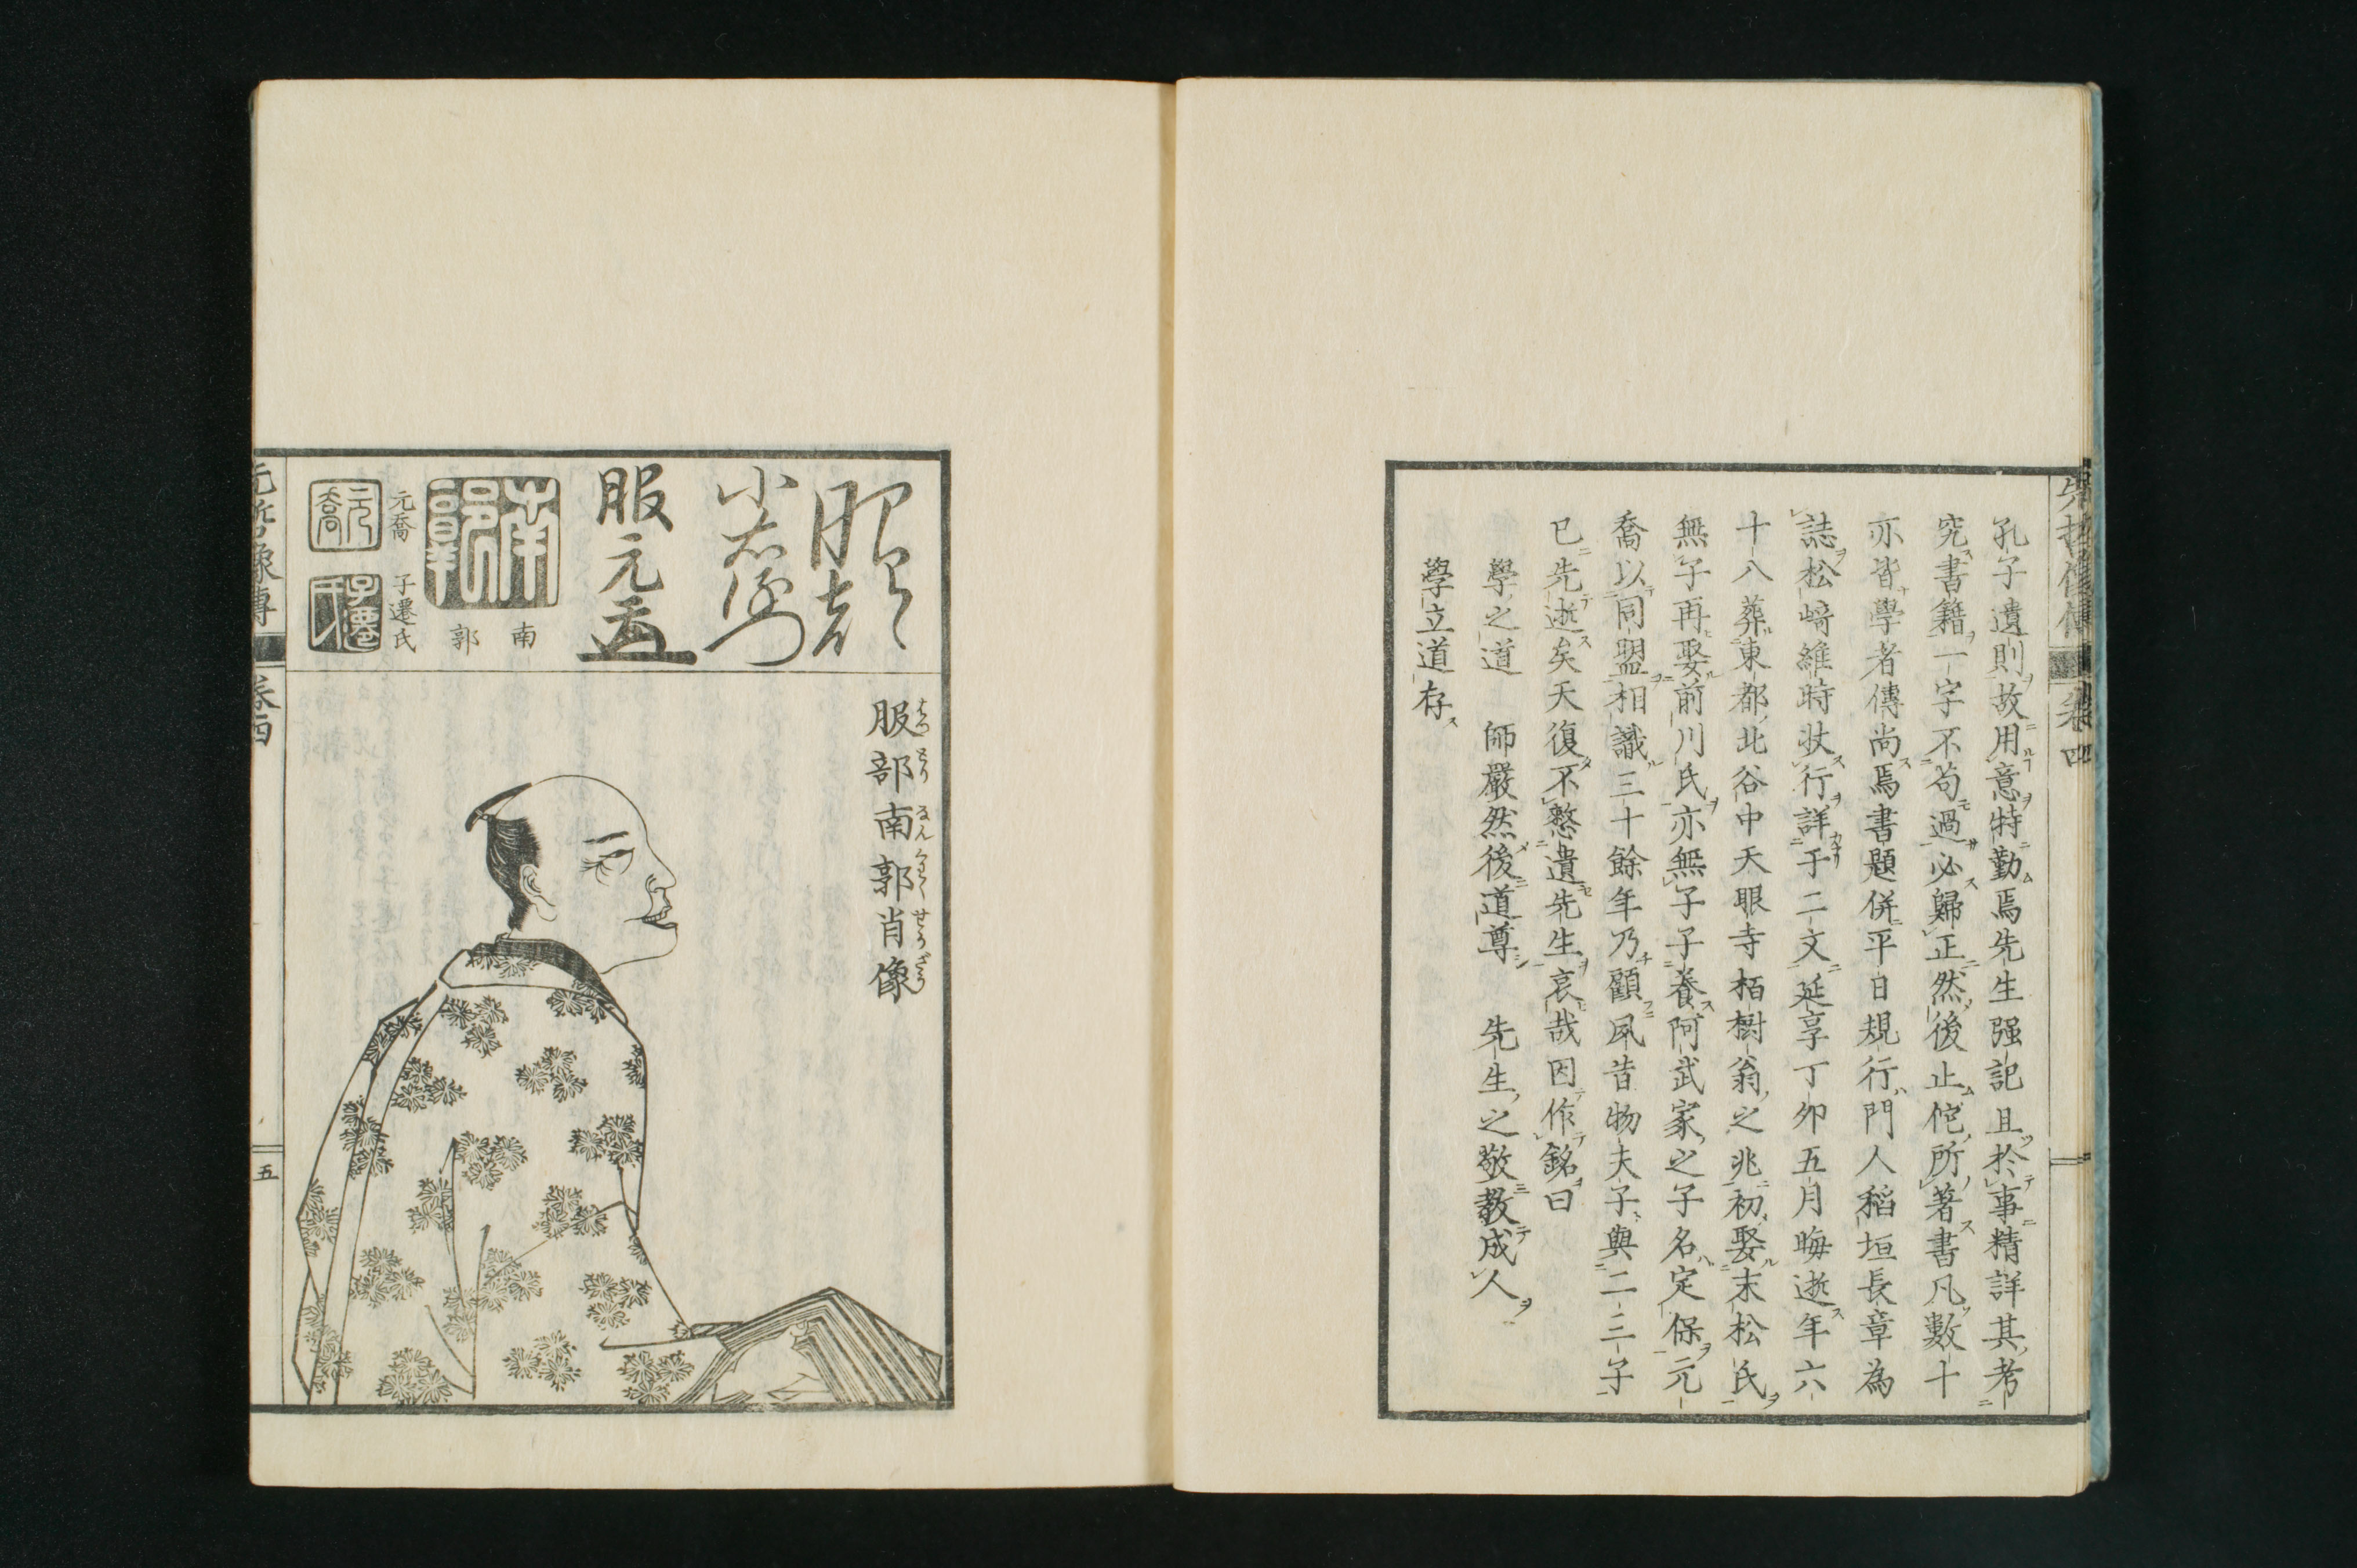 先哲像傳 卷四
孔子遺則故用意特勤焉先生强記且於事精詳其考
究書籍一字不苟過必歸正然後止佗所著書凡數十
亦皆學者傳尚焉書題併平日規行門人稻垣長章為
誌松﨑維時狀行詳于二文延享丁卯五月晦逝年六
十八葬東都北谷中天眼寺栢樹翁之兆初娶末松氏
無子再娶前川氏亦無子子養阿武家之子名定保元
喬以同盟相識三十餘年乃顧夙昔物夫子與二三子
已先逝矣天復不憖遺先生哀哉因作銘曰
學之道 師嚴然後道尊 先生之敬教成人
學立道存
服部
小右衛門
服元喬
南郭
南郭
元喬
子遷氏
元喬
子遷氏
服部南郭肖像
はつとりなんくわくせうざう
先哲像傳 卷四
五